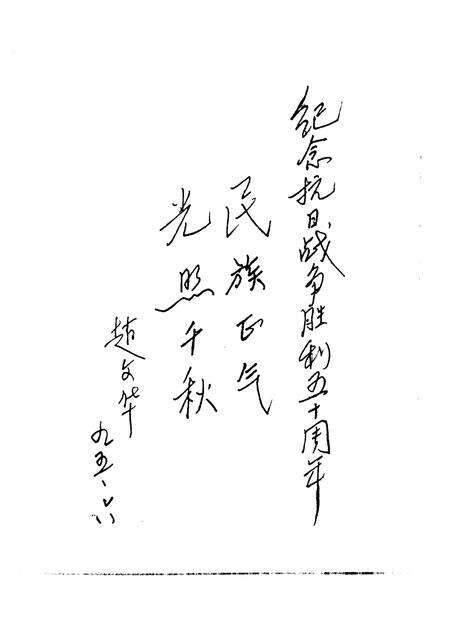 纪念抗日战争胜利五十周年
民族正气
光照千秋
赵文华
九五、